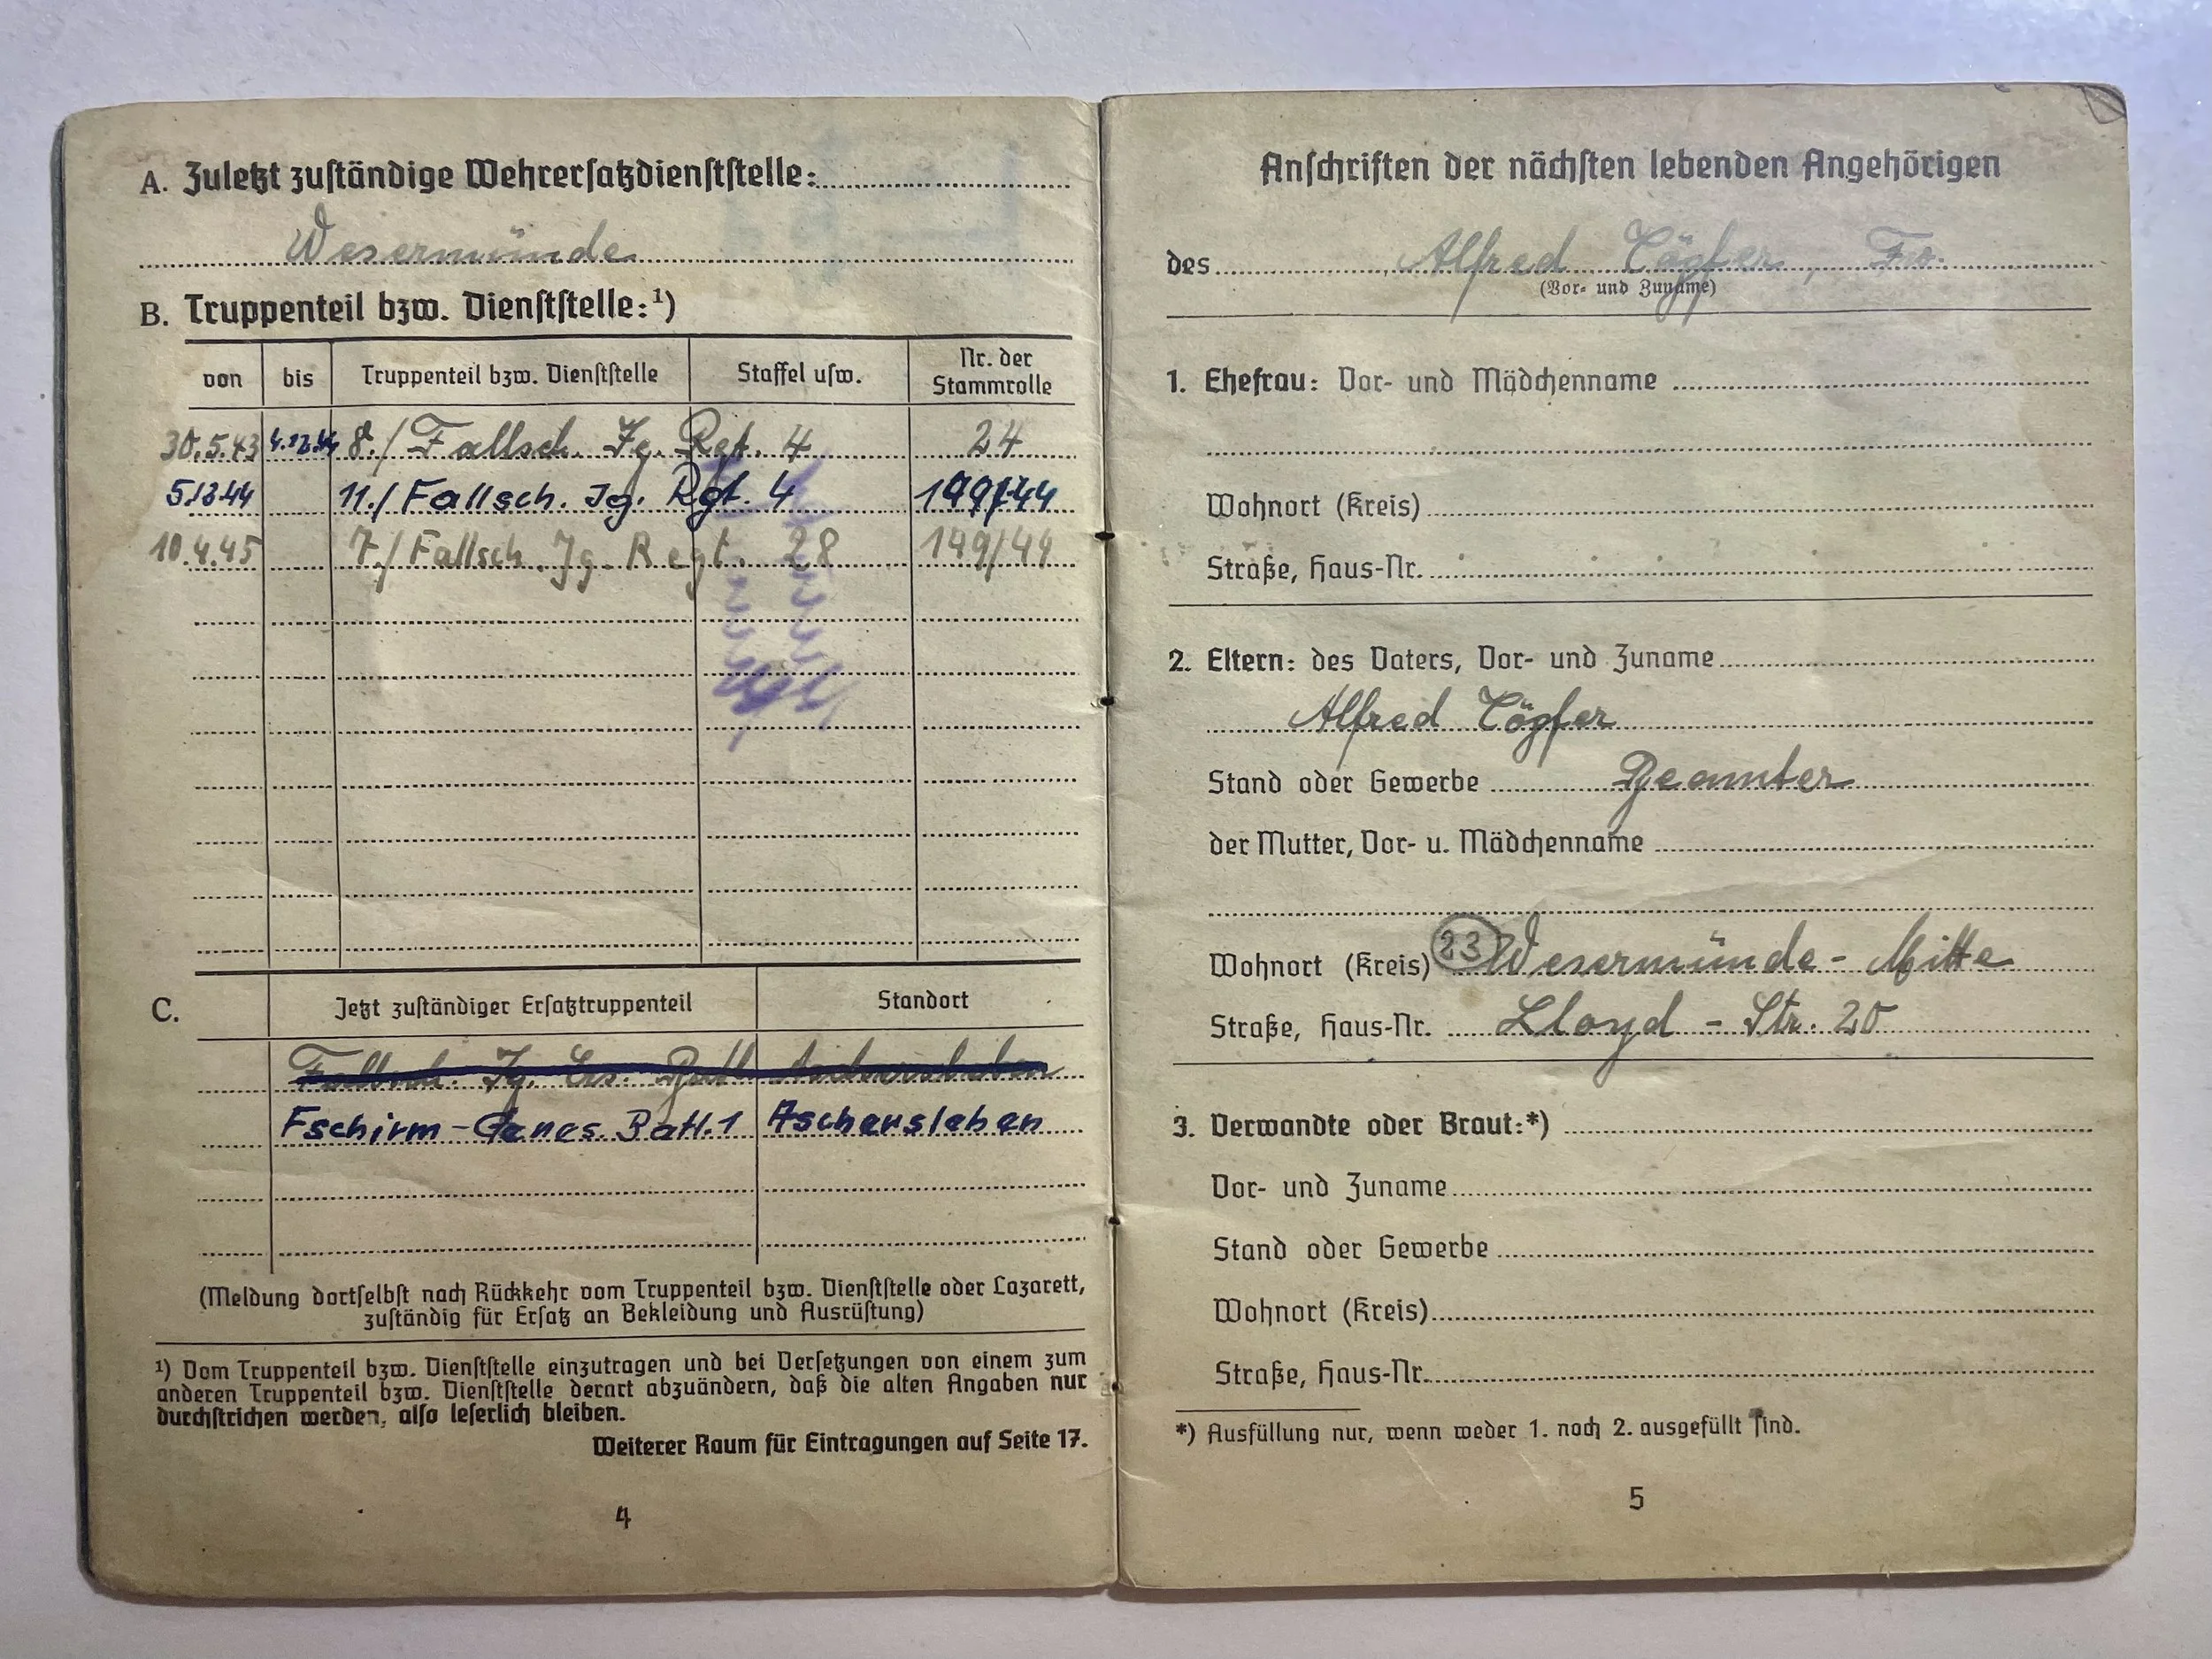 A. Zuletzt zuständige Wehrersatzdienststelle:
Wesermünde
B. Truppenteil bzw. Dienststelle:¹)
von bis Truppenteil bzw. Dienststelle Staffel usw. Nr. der Stammrolle
30.5.43 4.12.44 8./ Fallsch. Jg. Rgt. 4 24
5.12.44 11./ Fallsch. Jg. Rgt. 4 199/44
10.4.45 7./ Fallsch. Jg. Regt. 28 149/44
C. Jetzt zuständiger Ersatztruppenteil Standort
Fallsch. Jg. Ers. Batl.
Fschirm-Genes. Batl. 1 Aschersleben
(Meldung dortselbst nach Rückkehr vom Truppenteil bzw. Dienststelle oder Lazarett,
zuständig für Ersatz an Bekleidung und Ausrüstung)
¹) Vom Truppenteil bzw. Dienststelle einzutragen und bei Versetzungen von einem zum
anderen Truppenteil bzw. Dienststelle derart abzuändern, daß die alten Angaben nur
durchstrichen werden, also leserlich bleiben.
Weiterer Raum für Eintragungen auf Seite 17.
4
Anschriften der nächsten lebenden Angehörigen
des Alfred Tögfer,
(Vor- und Zuname)
1. Ehefrau: Vor- und Mädchenname
Wohnort (Kreis)
Straße, Haus-Nr.
2. Eltern: des Vaters, Vor- und Zuname
Alfred Tögfer
Stand oder Gewerbe Beamter
der Mutter, Vor- u. Mädchenname
Wohnort (Kreis) 23 Wesermünde - Mitte
Straße, Haus-Nr. Lloyd - Str. 20
3. Verwandte oder Braut:*)
Vor- und Zuname
Stand oder Gewerbe
Wohnort (Kreis)
Straße, Haus-Nr.
*) Ausfüllung nur, wenn weder 1. noch 2. ausgefüllt sind.
5